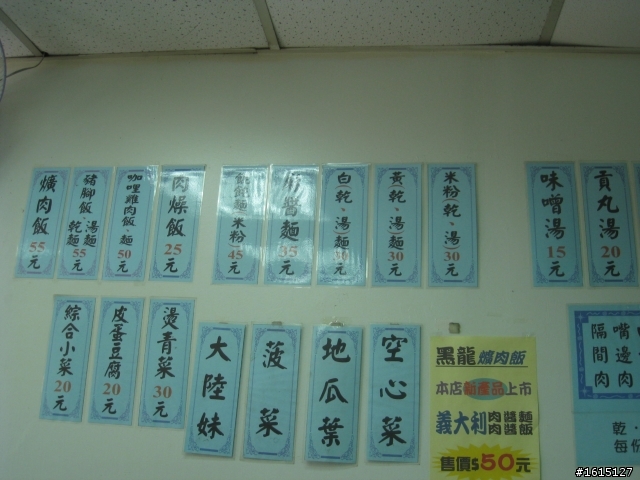 爌肉飯 55元
豬腳飯 乾麵 湯麵 55元
咖哩雞肉飯·麵 50元
肉燥飯 25元
米粉 45元
醬麵 35元
白(乾·湯)麵 30元
黃(乾·湯)麵 30元
米粉(乾·湯) 30元
味噌湯 15元
貢丸湯 20元
綜合小菜 20元
皮蛋豆腐 20元
燙青菜 30元
大陸妹
菠菜
地瓜葉
空心菜
黑龍 爌肉飯
本店新產品上市
義大利肉醬麵 肉醬飯
售價$50元
隔間肉
嘴邊肉
乾·
每份
#1615127